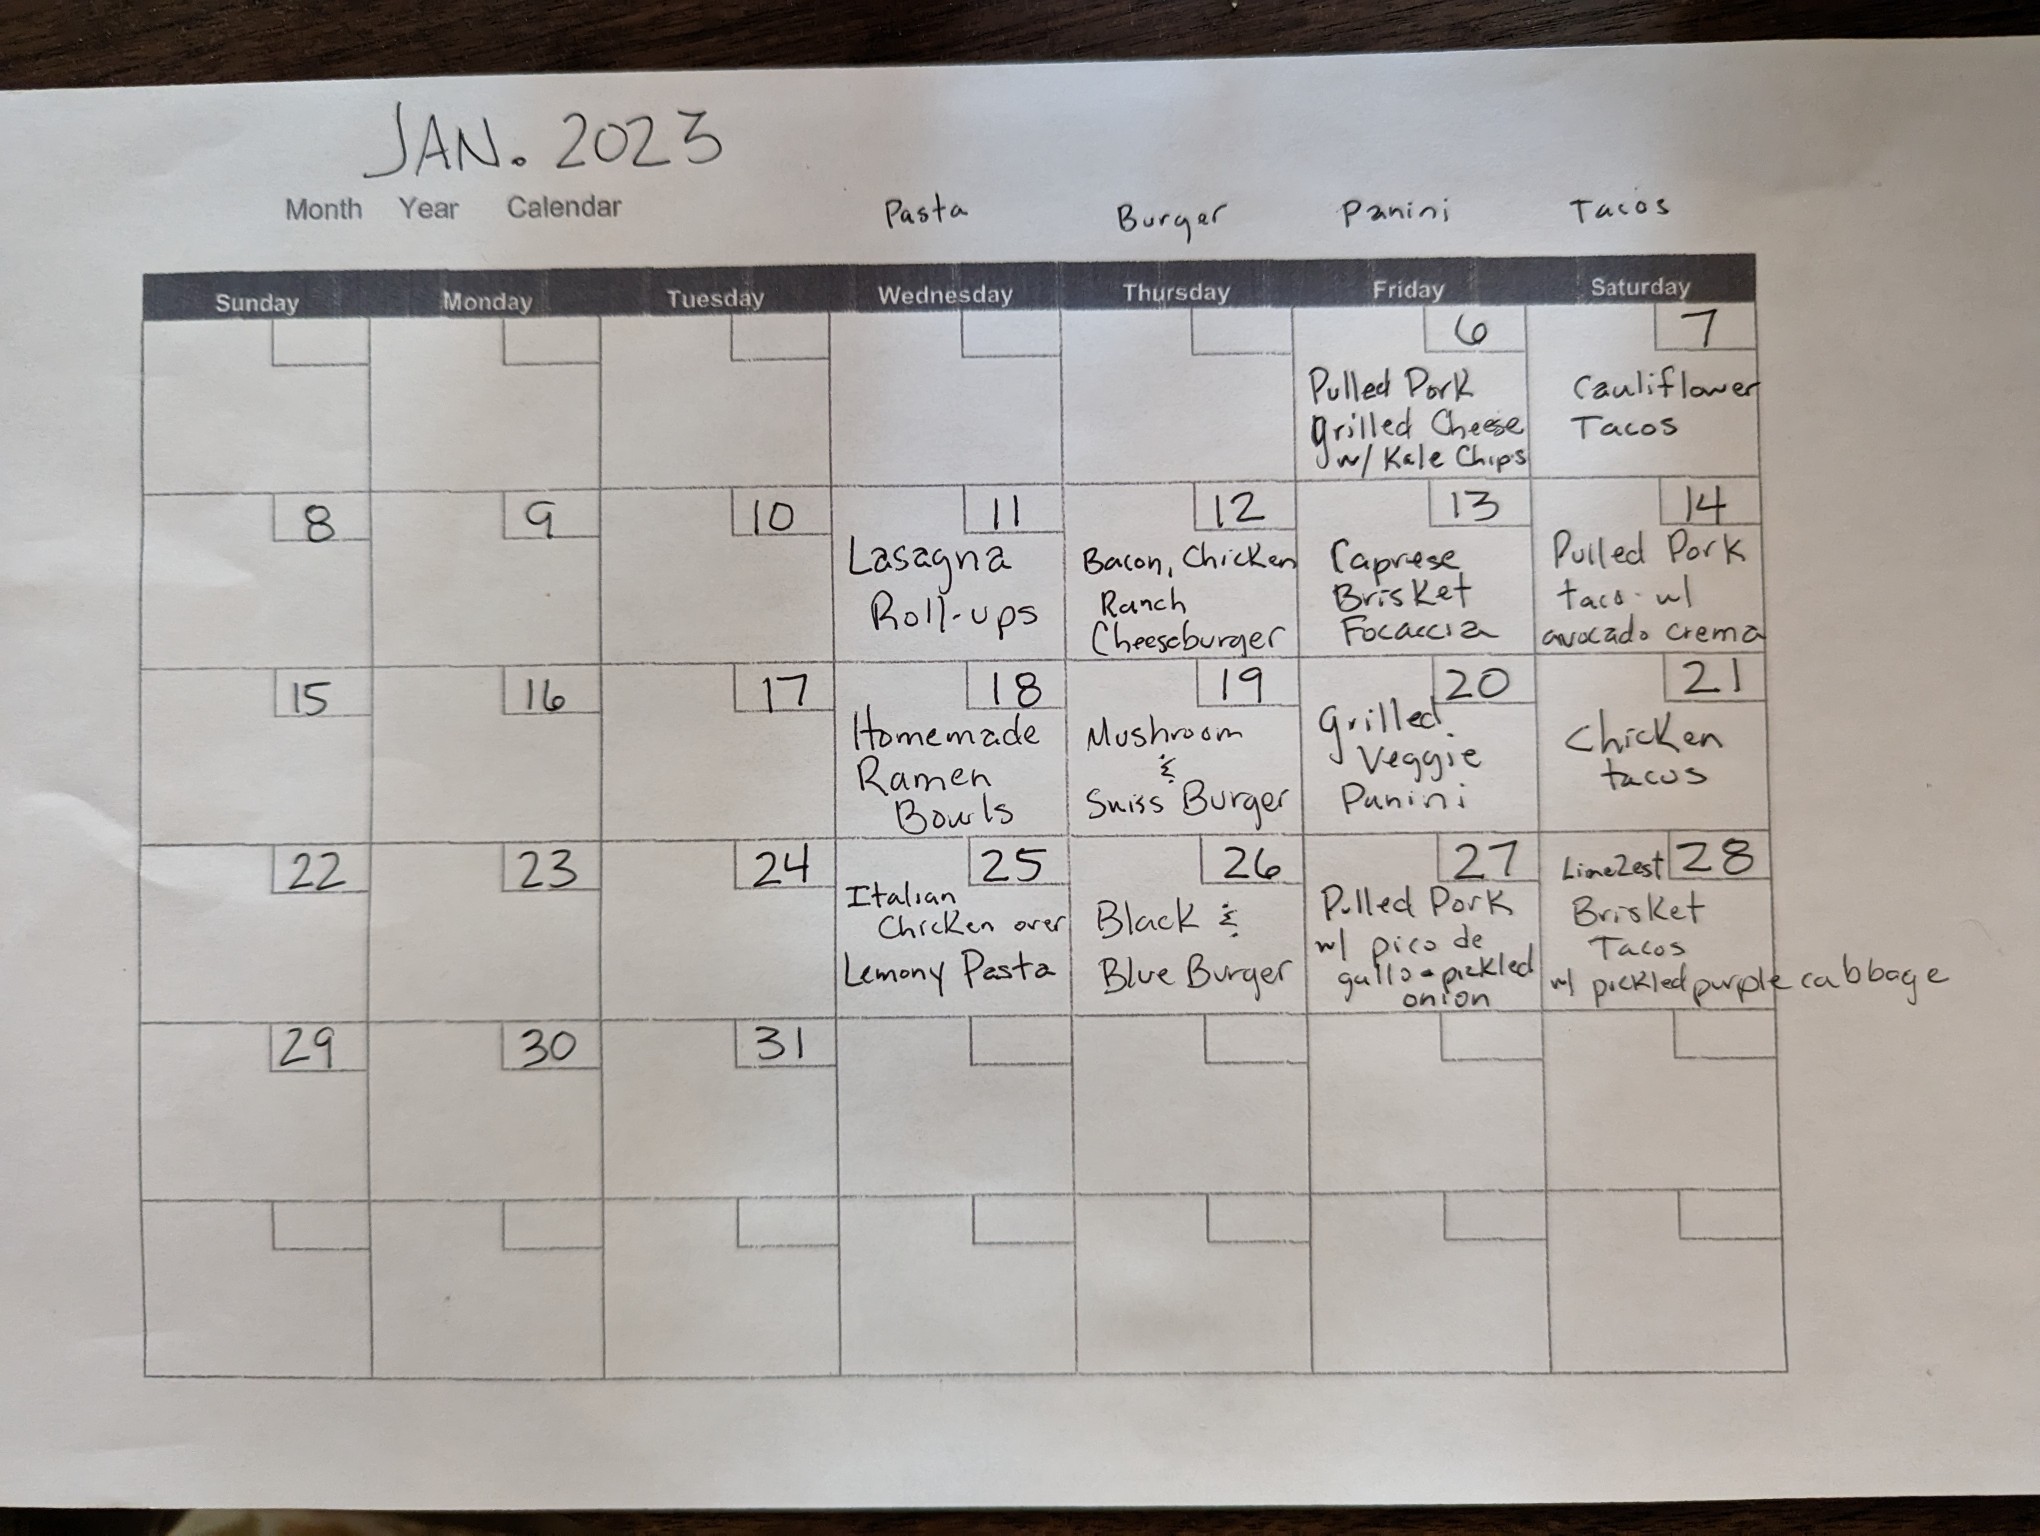 JAN. 2023
Month Year Calendar
Pasta Burger Panini Tacos
Sunday Monday Tuesday Wednesday Thursday Friday Saturday
6
Pulled Pork
grilled Cheese
w/ Kale Chips
7
Cauliflower
Tacos
8
9
10
11
Lasagna
Roll-ups
12
Bacon, Chicken
Ranch
Cheeseburger
13
Caprese
Brisket
Focaccia
14
Pulled Pork
taco w/
avocado crema
15
16
17
18
Homemade
Ramen
Bowls
19
Mushroom
&
Swiss Burger
20
Grilled
Veggie
Panini
21
Chicken
tacos
22
23
24
25
Italian
Chicken over
Lemony Pasta
26
Black &
Blue Burger
27
Pulled Pork
w/ pico de
gallo + pickled
onion
28
Lime Zest
Brisket
Tacos
w/ pickled purple cabbage
29
30
31